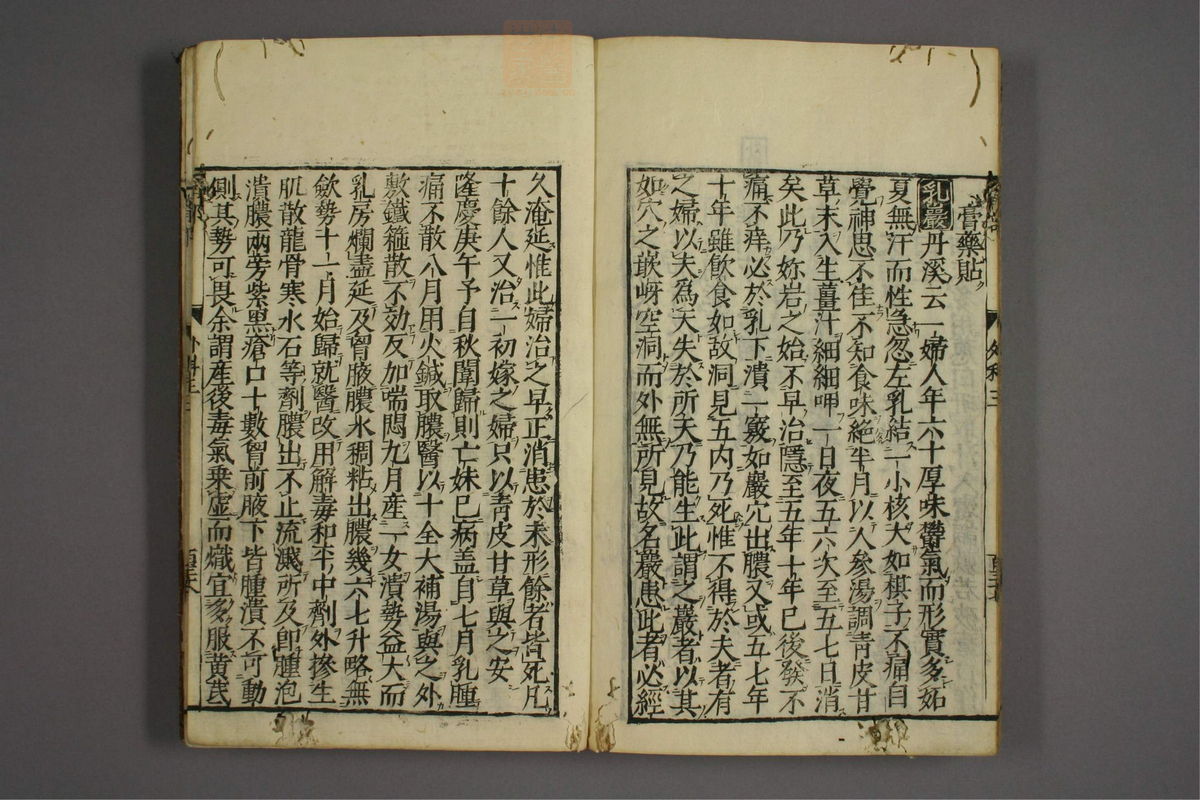 膏藥貼
乳巖丹溪云一婦人年六十厚味鬱氣而形實多妬
夏無汗而性急忽左乳結一小核大如棋子不痛自
覺神思不佳不知食味絶半月以人參湯調青皮甘
草末入生薑汁細細呷一日夜五六次至五七日消
矣此乃妳岩之始不早治隱至五年十年已後發不
痛不痒必於乳下潰一竅如巖穴出膿又或五七年
十年雖飲食如故洞見五内乃死惟不得於夫者有
之婦以夫爲天失於所天乃能生此謂之巖者以其
如穴之嵌岈空洞而外無所見故名巖患此者必經
久淹延惟此婦治之早正消患於未形餘者皆死凡
十餘人又治一初嫁之婦只以青皮甘草與之安
隆慶庚午予自秋闈歸則亡妹已病盖自七月乳腫
痛不散八月用火鍼取膿醫以十全大補湯與之外
敷鐵箍散不効反加喘悶九月産一女潰勢益大而
乳房爛盡延及胷腋膿水稠粘出膿幾六七升略無
歛勢十一月始歸就醫改用解毒和平中劑外摻生
肌散龍骨寒水石等劑膿出不止流濺所及即腫泡
潰膿兩旁紫黒瘡口十數胷前腋下皆腫潰不可動
側其勢可畏余謂産後毒氣乗虚而熾宜多服黄芪
外科三